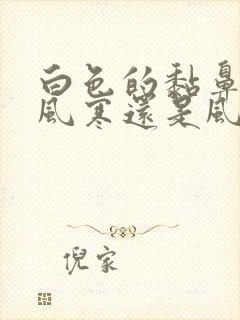 白色的黏鼻
風寒還是風
倪家